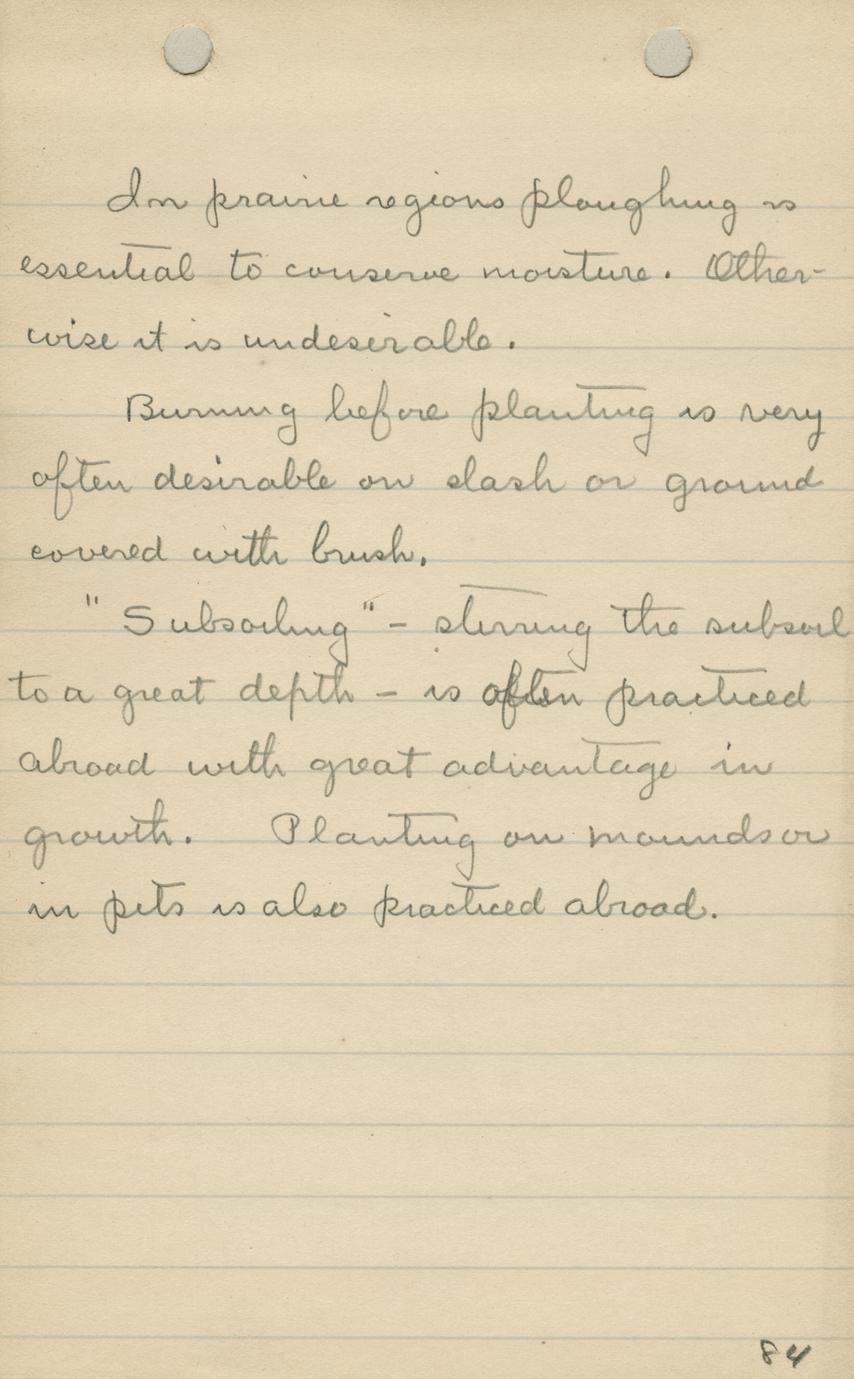 In prairie regions ploughing is
essential to conserve moisture. Other-
wise it is undesirable.
Burning before planting is very
often desirable on slash or ground
covered with brush.
"Subsoiling" - stirring the subsoil
to a great depth - is often practiced
abroad with great advantage in
growth. Planting on mounds or
in pits is also practiced abroad.
84